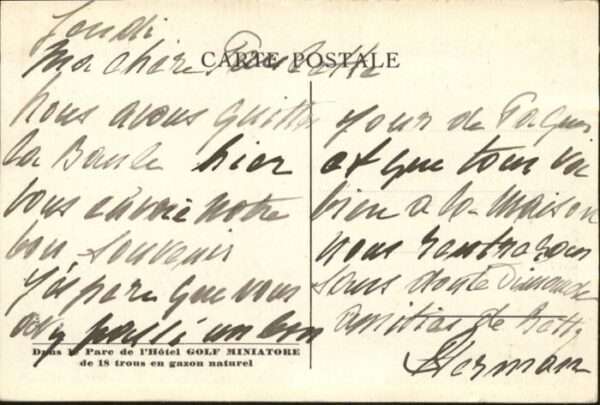 Jeudi
CARTE POSTALE
Ma chère Paulette
Nous avons quitté
la Baule hier
vous envoie notre
bon souvenir
J'espère que vous
avez passé un bon
Jour de Paques
et que tout va
bien a la maison
Nous rentrerons
sans doute Dimanche
amitiés de
Herman
Dans le Parc de l'Hôtel GOLF MINIATORE
de 18 trous en gazon naturel